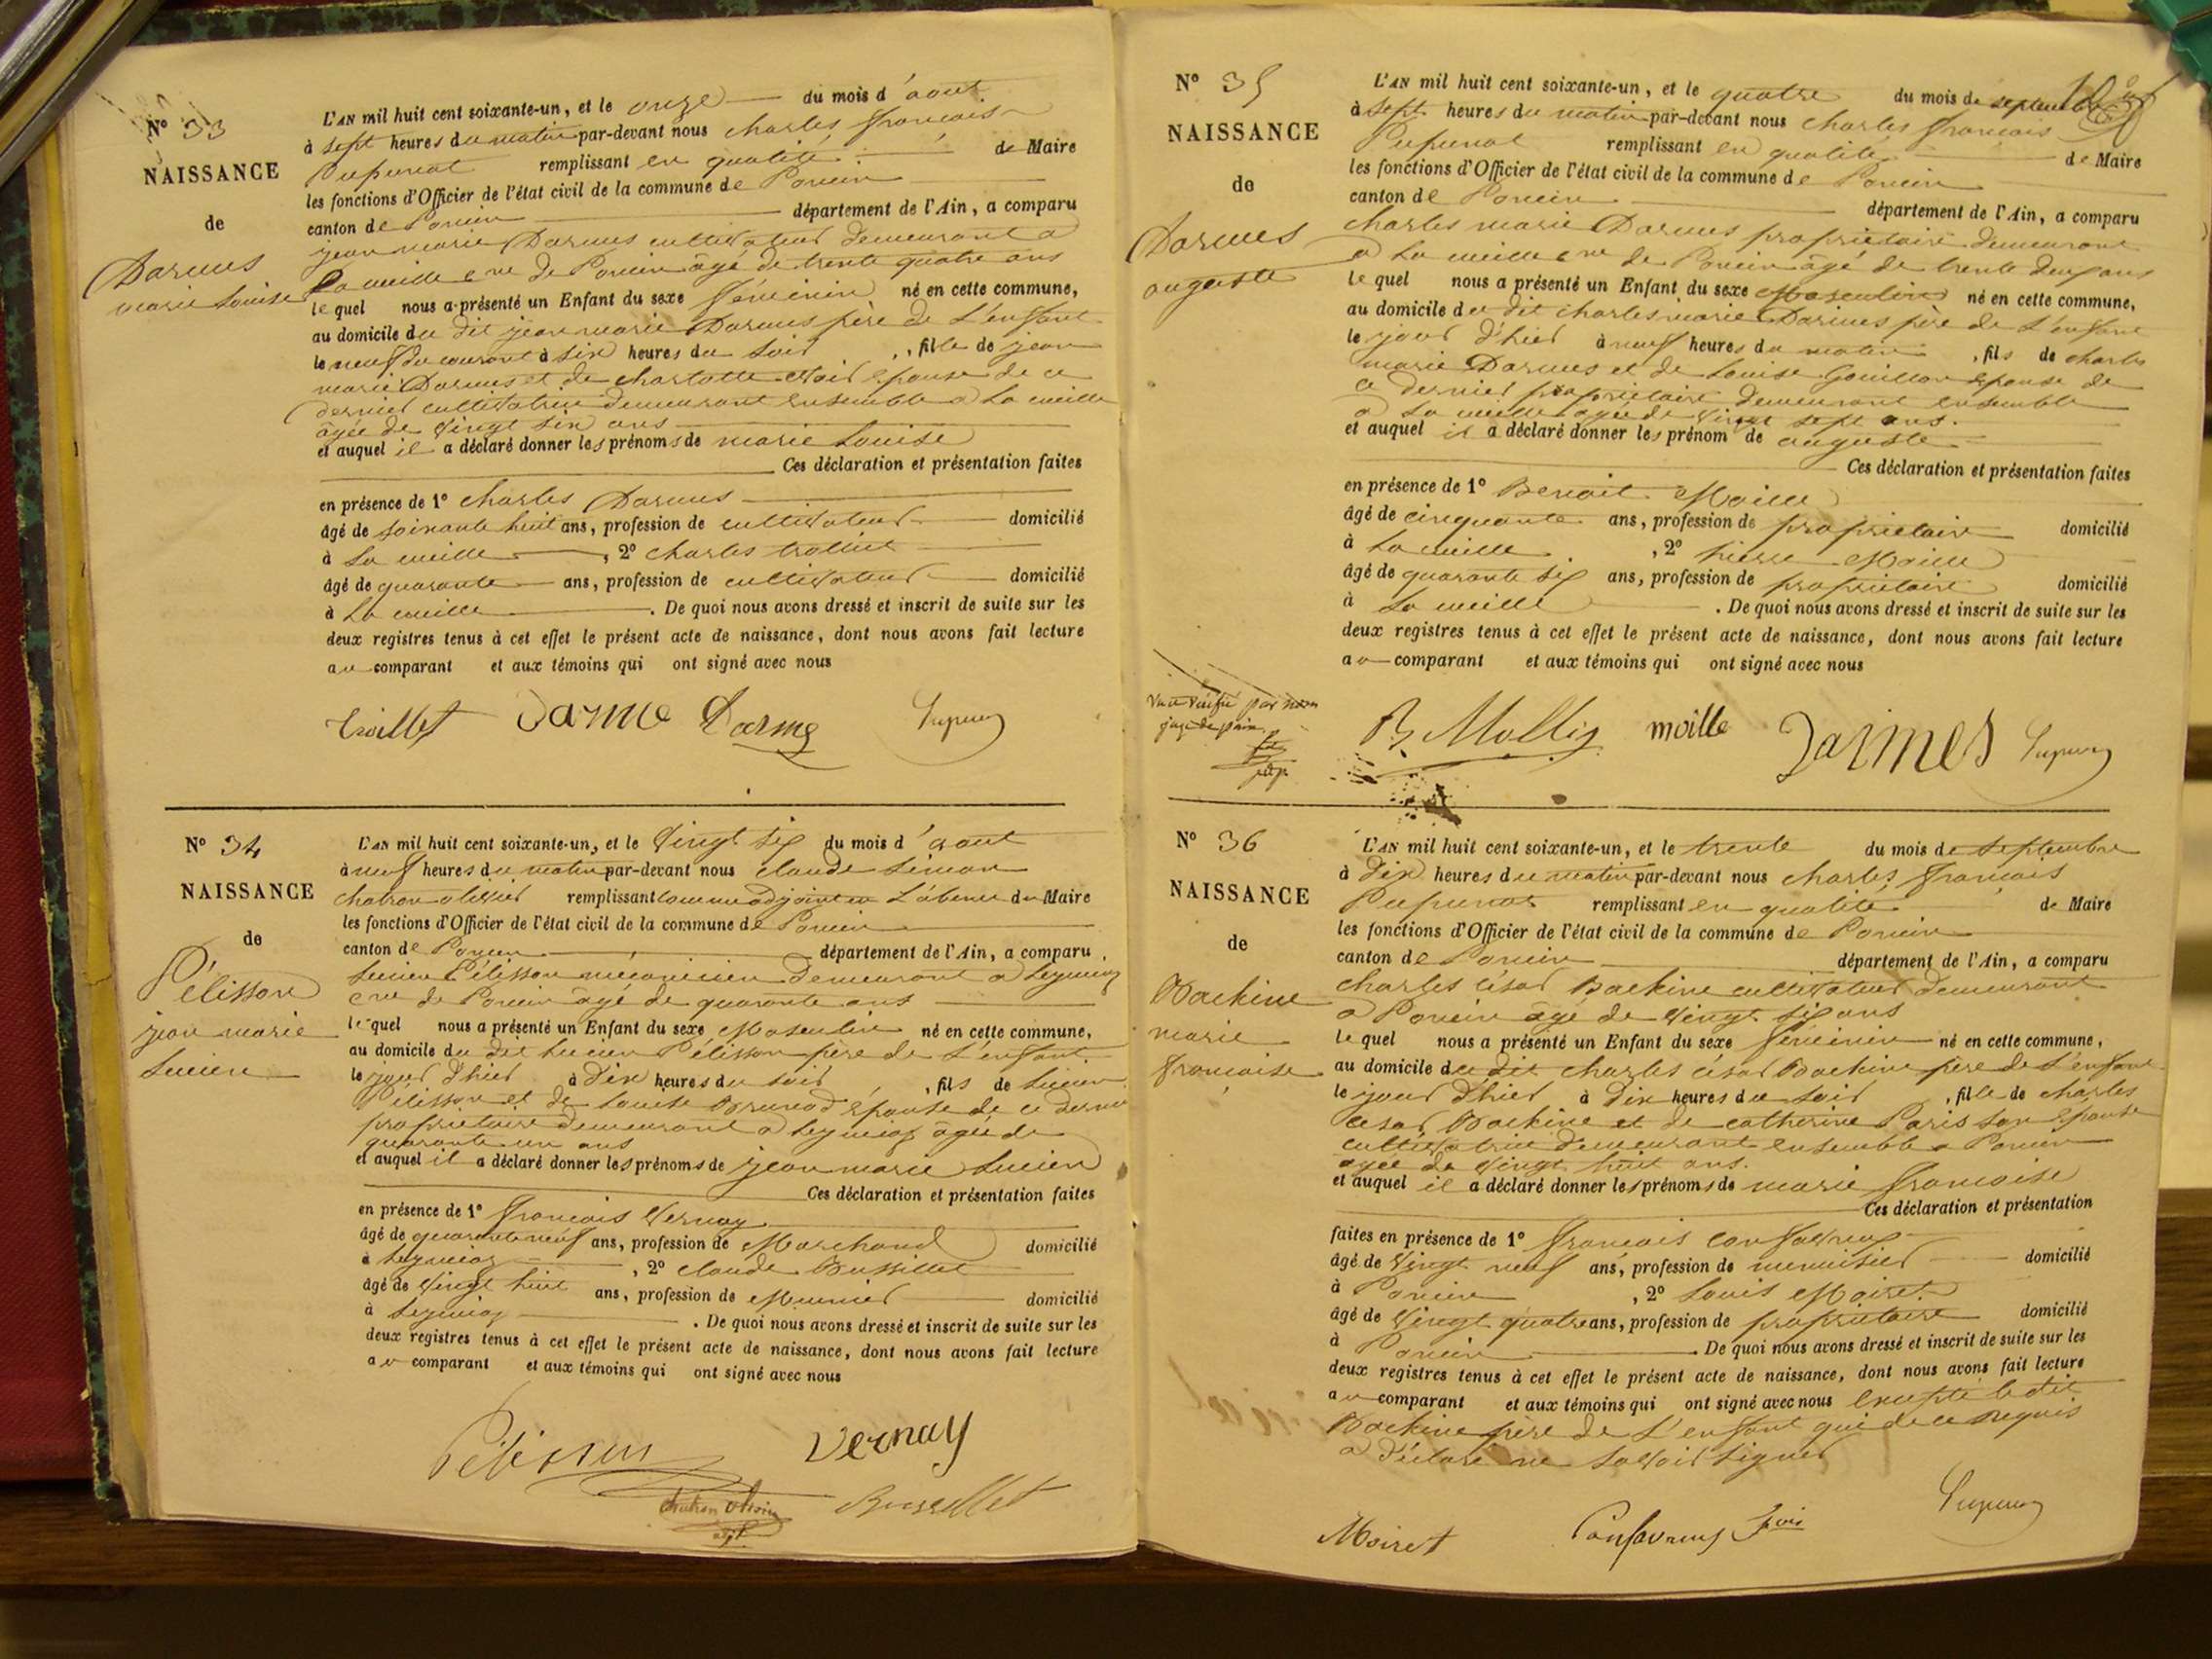 N° 33
NAISSANCE
de
Darmes
marie Louise
L'AN mil huit cent soixante-un, et le onze du mois d'aout
à sept heures du matin par-devant nous charles francois
Pupunat remplissant en qualité de Maire
les fonctions d'Officier de l'état civil de la commune de Poncin
canton de Poncin département de l'Ain, a comparu
jean marie Darmes cultivateur demeurant a
La cueille cne de Poncin âgé de trente quatre ans
lequel nous a présenté un Enfant du sexe féminin né en cette commune,
au domicile du dit jean marie Darmes père de l'enfant
le neuf du courant à six heures du soir, fille de jean
marie Darmes et de charlotte épouse de ce
dernier cultivatrice demeurant ensemble a La cueille
âgée de vingt six ans
et auquel il a déclaré donner les prénoms de marie Louise
Ces déclaration et présentation faites
en présence de 1° charles Darmes
âgé de soixante huit ans, profession de cultivateur domicilié
à La cueille, 2° charles trolliet
âgé de quarante ans, profession de cultivateur domicilié
à La cueille. De quoi nous avons dressé et inscrit de suite sur les
deux registres tenus à cet effet le présent acte de naissance, dont nous avons fait lecture
au comparant et aux témoins qui ont signé avec nous
N° 34
NAISSANCE
de
Pélisson
jean marie
Lucien
L'AN mil huit cent soixante-un, et le vingt six du mois d'aout
à neuf heures du matin par-devant nous claude simon
chatron olivier remplissant comme adjoint en l'absence du Maire
les fonctions d'Officier de l'état civil de la commune de Poncin
canton de Poncin département de l'Ain, a comparu
Lucien Pélisson mécanicien demeurant a Leymiaz
cne de Poncin âgé de quarante ans
lequel nous a présenté un Enfant du sexe Masculin né en cette commune,
au domicile du dit Lucien Pélisson père de l'enfant
le jour d'hier à dix heures du soir, fils de Lucien
Pélisson et de Louise Brunod épouse de ce dernier
propriétaire demeurant a Leymiaz âgée de
quarante un ans
et auquel il a déclaré donner les prénoms de jean marie Lucien
Ces déclaration et présentation faites
en présence de 1° francois Vernay
âgé de quarante neuf ans, profession de Marchand domicilié
à Leymiaz, 2° claude Bussillet
âgé de vingt huit ans, profession de Meunier domicilié
à Leymiaz. De quoi nous avons dressé et inscrit de suite sur les
deux registres tenus à cet effet le présent acte de naissance, dont nous avons fait lecture
au comparant et aux témoins qui ont signé avec nous
Pélisson Vernay
chatron olivier Bussillet
adjt
N° 35
NAISSANCE
de
Darmes
auguste
L'AN mil huit cent soixante-un, et le quatre du mois de septembre
à sept heures du matin par-devant nous charles francois
Pupunat remplissant en qualité de Maire
les fonctions d'Officier de l'état civil de la commune de Poncin
canton de Poncin département de l'Ain, a comparu
charles marie Darmes propriétaire demeurant
a La cueille cne de Poncin âgé de trente deux ans
lequel nous a présenté un Enfant du sexe Masculin né en cette commune,
au domicile du dit charles marie Darmes père de l'enfant
le jour d'hier à neuf heures du matin, fils de charles
marie Darmes et de Louise Gouillon épouse de
ce dernier propriétaire demeurant ensemble
a La cueille âgée de vingt sept ans.
et auquel il a déclaré donner les prénom de auguste
Ces déclaration et présentation faites
en présence de 1° Benoit Moille
âgé de cinquante ans, profession de propriétaire domicilié
à La cueille, 2° Pierre Moille
âgé de quarante six ans, profession de propriétaire domicilié
à La cueille. De quoi nous avons dressé et inscrit de suite sur les
deux registres tenus à cet effet le présent acte de naissance, dont nous avons fait lecture
au comparant et aux témoins qui ont signé avec nous
Vu et vérifié par nous
juge de paix
moille Darmes
N° 36
NAISSANCE
de
Backine
marie
francoise
L'AN mil huit cent soixante-un, et le trente du mois de septembre
à dix heures du matin par-devant nous charles francois
Pupunat remplissant en qualité de Maire
les fonctions d'Officier de l'état civil de la commune de Poncin
canton de Poncin département de l'Ain, a comparu
charles césar Backine cultivateur demeurant
a Poncin âgé de vingt six ans
lequel nous a présenté un Enfant du sexe féminin né en cette commune,
au domicile du dit charles césar Backine père de l'enfant
le jour d'hier à dix heures du soir, fille de charles
césar Backine et de catherine Paris son épouse
cultivatrice demeurant ensemble a Poncin
agée de vingt huit ans.
et auquel il a déclaré donner les prénoms de marie francoise
Ces déclaration et présentation
faites en présence de 1° francois Confavreux
âgé de vingt neuf ans, profession de menuisier domicilié
à Poncin, 2° Louis Moiret
âgé de vingt quatre ans, profession de propriétaire domicilié
à Poncin. De quoi nous avons dressé et inscrit de suite sur les
deux registres tenus à cet effet le présent acte de naissance, dont nous avons fait lecture
au comparant et aux témoins qui ont signé avec nous excepté le dit
Backine père de l'enfant qui de ce requis
a déclaré ne savoir signer
Moiret Confavreux